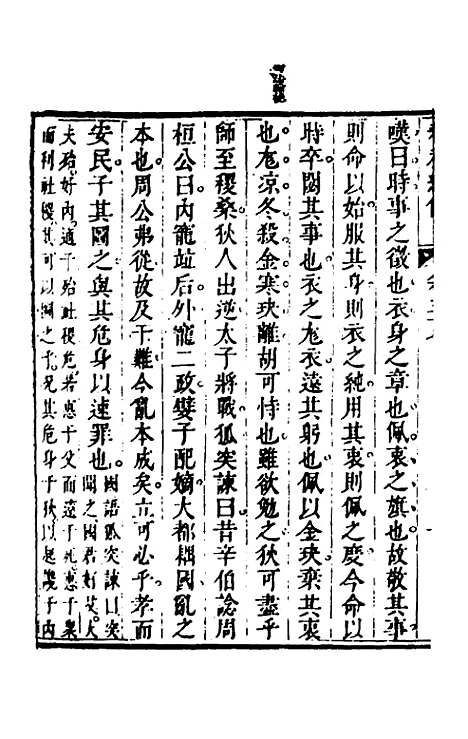 嘆曰時事之徵也衣身之章也佩衷之旗也故敬其事
則命以始服其身則衣之純用其衷則佩之度今命以
時卒閟其事也衣之尨衣遠其躬也佩以金玦棄其衷
也尨涼冬殺金寒玦離胡可恃也雖欲勉之狄可盡乎
師至稷桑狄人出逆太子將戰狐突諫曰昔辛伯諗周
桓公曰內寵竝后外寵二政嬖子配嫡大都耦國亂之
本也周公弗從故及于難今亂本成矣立可必乎孝而
安民子其圖之與其危身以速罪也
國語狐突諫曰突
聞之國君好艾大
夫殆好內適子殆社稷危若惠于父而遠于死惠于衆
而利社稷其可以圖之乎況其危身于狄以起讒于內